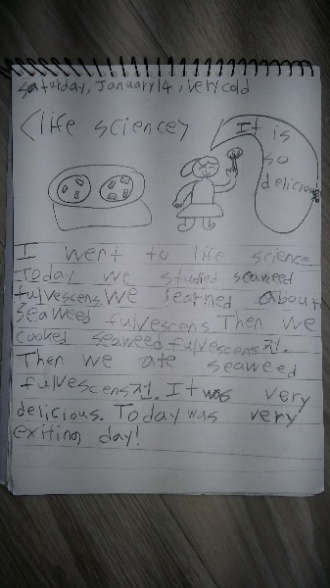 Saturday, January 14, very cold
<life science>
It is
so
delicious
I went to life science
Today we studied seaweed
fulvescens. We learned about
seaweed fulvescens. Then we
cooked seaweed fulvescens전.
Then we ate seaweed
fulvescens전. It was very
delicious. Today was very
exiting day!